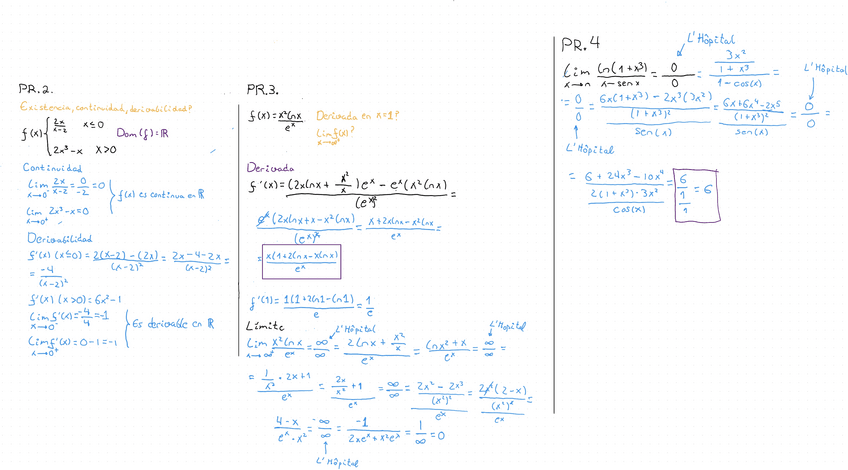 PR.2.
Existencia, continuidad, derivabilidad?
f(x) { 2x/(x-2) x≤0
2x³-x x>0
Dom(f)=ℝ
Continuidad
Lim x→0⁻ 2x/(x-2) = 0/-2 = 0
Lim x→0⁺ 2x³-x=0
} f(x) es continua en ℝ
Derivabilidad
f'(x) (x≤0) = (2(x-2)-(2x))/(x-2)² = (2x-4-2x)/(x-2)² =
= -4/(x-2)²
f'(x) (x>0) = 6x²-1
Lim x→0⁻ f'(x) = -4/4 = -1
Lim x→0⁺ f'(x) = 0-1 = -1
} Es derivable en ℝ
PR.3.
f(x) = x²lnx/eˣ
Derivada en x=1?
Lim x→∞ f(x)?
Derivada
f'(x) = ((2xlnx + x²/x)eˣ - eˣ(x²lnx))/(eˣ)² =
eˣ(2xlnx+x-x²lnx)/(eˣ)² = (x+2xlnx-x²lnx)/eˣ =
= x(1+2lnx-xlnx)/eˣ
f'(1) = 1(1+2ln1-ln1)/e = 1/e
Límite
L'Hôpital
L'Hôpital
Lim x→∞ x²lnx/eˣ = ∞/∞ = (2lnx + x²/x)/eˣ = (lnx²+x)/eˣ = ∞/∞ =
= (1/x² · 2x+1)/eˣ = (2x/x² + 1)/eˣ = ∞/∞ = ((2x²-2x³)/(x²)²)/eˣ = (2x²(2-x)/(x²)²)/eˣ =
(4-x)/(eˣ·x²) = -∞/∞ = -1/(2xeˣ+x²eˣ) = 1/∞ = 0
L'Hôpital
PR.4
L'Hôpital
L'Hôpital
Lim x→0 ln(1+x³)/(x-senx) = 0/0 = (3x²/(1+x³))/(1-cos(x)) =
= 0/0 = ((6x(1+x³)-2x³(3x²))/(1+x³)²)/sen(x) = ((6x+6x⁴-2x⁵)/(1+x³)²)/sen(x) = 0/0 =
L'Hôpital
= ((6+24x³-10x⁴)/(2(1+x³)·3x²))/cos(x) = (6/1)/1 = 6